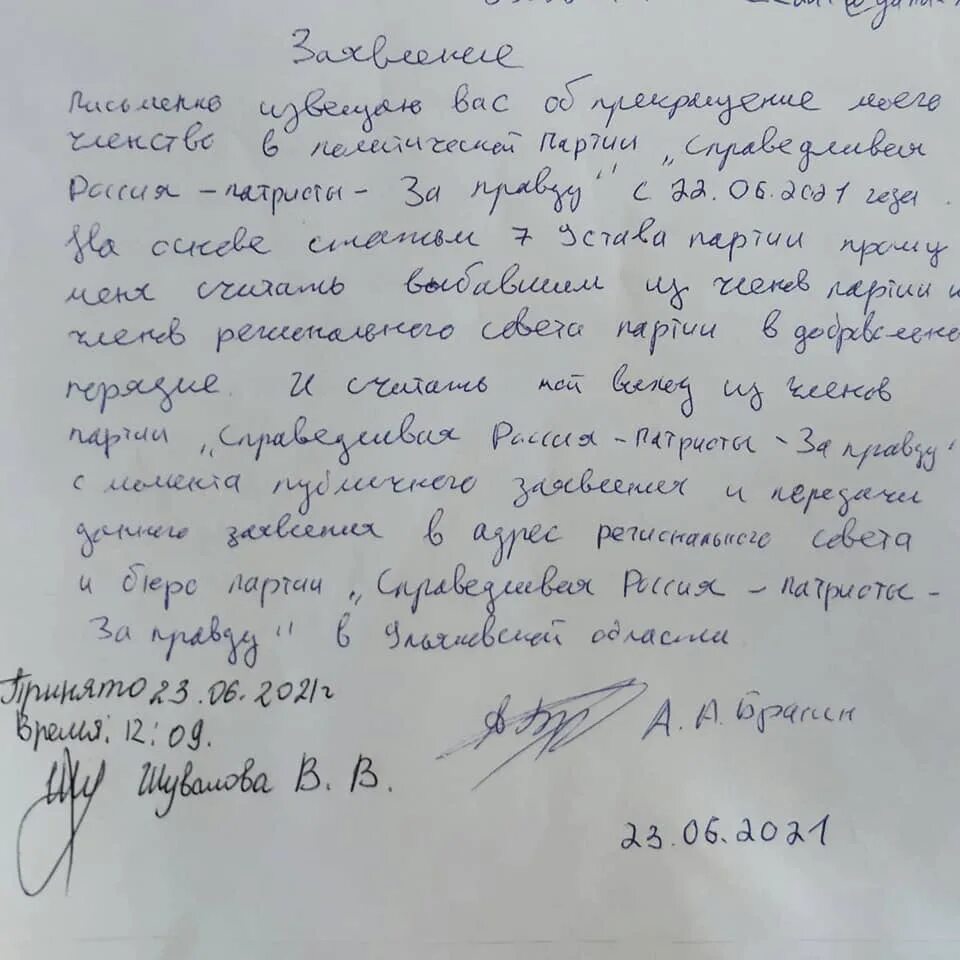 Заявление
Письменно извещаю вас об прекращение моего
членство в политической Партии „Справедливая
Россия – патристы – За правду" с 22.06.2021 года.
На основе статьи 7 Устава партии прошу
меня считать выбавшим из членов партии и
членов регионального совета партии в
порядке. И считать мой выход из членов
партии „Справедливая Россия – Патристы – За правду"
с момента публичного заявления и передачи
данного заявления в адрес регионального совета
и бюро партии „Справедливая Россия – патристы –
За правду" в Ульяновской области
Принято 23.06.2021г
Время: 12:09.
Шувалова В. В.
А. А. Брагин
23.06.2021